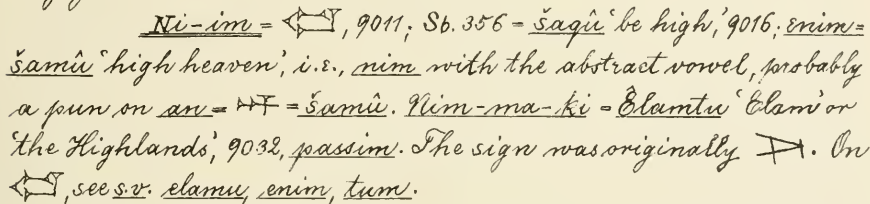 Ni-im = 𒉏, 9011; Sb. 356 = šaqû 'be high,' 9016; enim =
šamû 'high heaven', i.e., nim with the abstract vowel, probably
a pun on an = 𒀭 = šamû. Nim-ma-ki = Êlamtu 'Elam' or
'the Highlands', 9032, passim. The sign was originally . On
𒉏, see s.v. elamu, enim, tum.